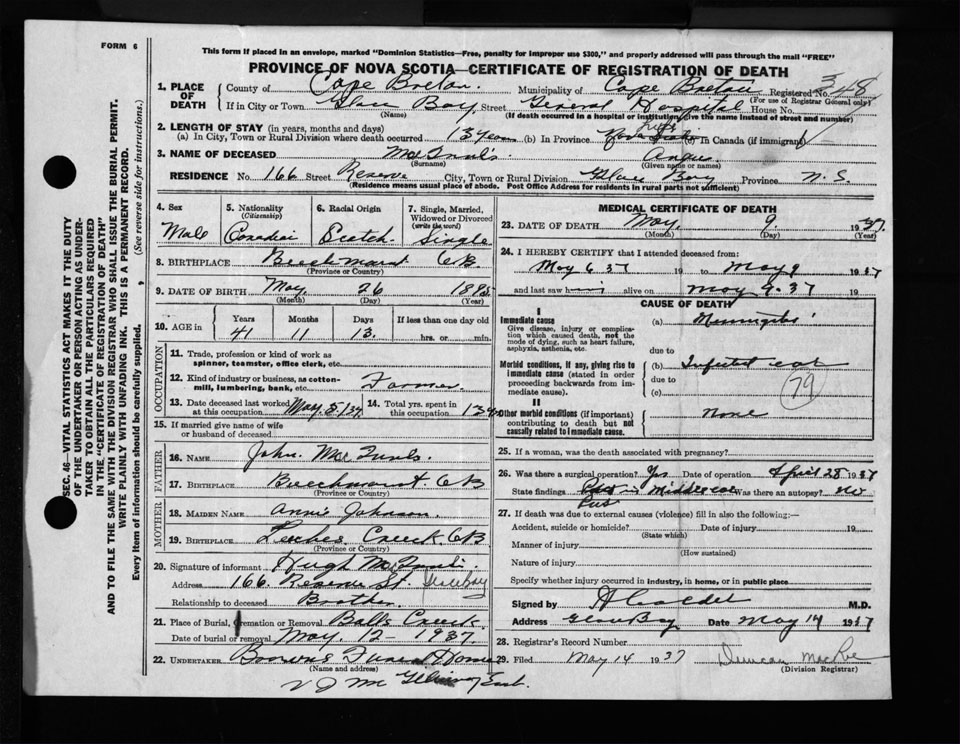 FORM 6
This form if placed in an envelope, marked "Dominion Statistics—Free, penalty for improper use $300," and properly addressed will pass through the mail "FREE"
PROVINCE OF NOVA SCOTIA—CERTIFICATE OF REGISTRATION OF DEATH
1. PLACE OF DEATH
County of Cape Breton. Municipality of Cape Breton Registered No. 348
(For use of Registrar General only)
If in City or Town Glace Bay. Street General Hospital House No.
(Name) (If death occurred in a hospital or institution, give the name instead of street and number)
2. LENGTH OF STAY (in years, months and days)
(a) In City, Town or Rural Division where death occurred 13 years (b) In Province life (c) In Canada (if immigrant)
3. NAME OF DECEASED Angus
(Surname) (Given name or names)
RESIDENCE No. 166 Street Reserve City, Town or Rural Division Glace Bay Province N.S.
(Residence means usual place of abode. Post Office Address for residents in rural parts not sufficient)
4. Sex Male
5. Nationality (Citizenship)
6. Racial Origin Scotch
7. Single, Married, Widowed or Divorced (write the word) Single
8. BIRTHPLACE Beechmont CB
(Province or Country)
9. DATE OF BIRTH May 26 1895
(Month) (Day) (Year)
10. AGE in Years Months Days If less than one day old
41 11 13. hrs. or min.
OCCUPATION
11. Trade, profession or kind of work as spinner, teamster, office clerk, etc.
12. Kind of industry or business, as cotton-mill, lumbering, bank, etc. Farmer
13. Date deceased last worked at this occupation May 5/37
14. Total yrs. spent in this occupation 13
15. If married give name of wife or husband of deceased
FATHER
16. NAME John
17. BIRTHPLACE Beechmont. CB
(Province or Country)
MOTHER
18. MAIDEN NAME Annie Johnson
19. BIRTHPLACE Leitches Creeck. CB
(Province or Country)
20. Signature of informant Hugh
Address 166 Reserve St. Glace Bay
Relationship to deceased Brother
21. Place of Burial, Cremation or Removal Balls Creeck.
Date of burial or removal May. 12 - 1937.
22. UNDERTAKER Brown's Funeral Home
(Name and address)
MEDICAL CERTIFICATE OF DEATH
23. DATE OF DEATH May 9. 1937
(Month) (Day) (Year)
24. I HEREBY CERTIFY that I attended deceased from:
May 6 37 19 to May 9 1937
and last saw him alive on May 9. 37 19
CAUSE OF DEATH
I
Immediate cause
Give disease, injury or complication which caused death, not the mode of dying, such as heart failure, asphyxia, asthenia, etc.
(a) Meningitis
due to
Morbid conditions, if any, giving rise to immediate cause (stated in order proceeding backwards from immediate cause).
(b) Infected ear
due to
(c) 79
II
Other morbid conditions (if important) contributing to death but not causally related to immediate cause.
None
25. If a woman, was the death associated with pregnancy?
26. Was there a surgical operation? Yes Date of operation April 28 1937
State findings Pus in Middle ear Was there an autopsy? no
Pus
27. If death was due to external causes (violence) fill in also the following:—
Accident, suicide or homicide? Date of injury 19
(State which)
Manner of injury
(How sustained)
Nature of injury
Specify whether injury occurred in industry, in home, or in public place
Signed by M.D.
Address Glace Bay Date May 14 1937
28. Registrar's Record Number
29. Filed May 14 1937 Duncan MacRae
(Division Registrar)
SEC. 46—VITAL STATISTICS ACT MAKES IT THE DUTY
OF THE UNDERTAKER OR PERSON ACTING AS UNDER-
TAKER TO OBTAIN ALL THE PARTICULARS REQUIRED
IN THE "CERTIFICATE OF REGISTRATION OF DEATH"
AND TO FILE THE SAME WITH THE DIVISION REGISTRAR WHO SHALL ISSUE THE BURIAL PERMIT.
WRITE PLAINLY WITH UNFADING INK. THIS IS A PERMANENT RECORD.
Every item of information should be carefully supplied. (See reverse side for instructions.)